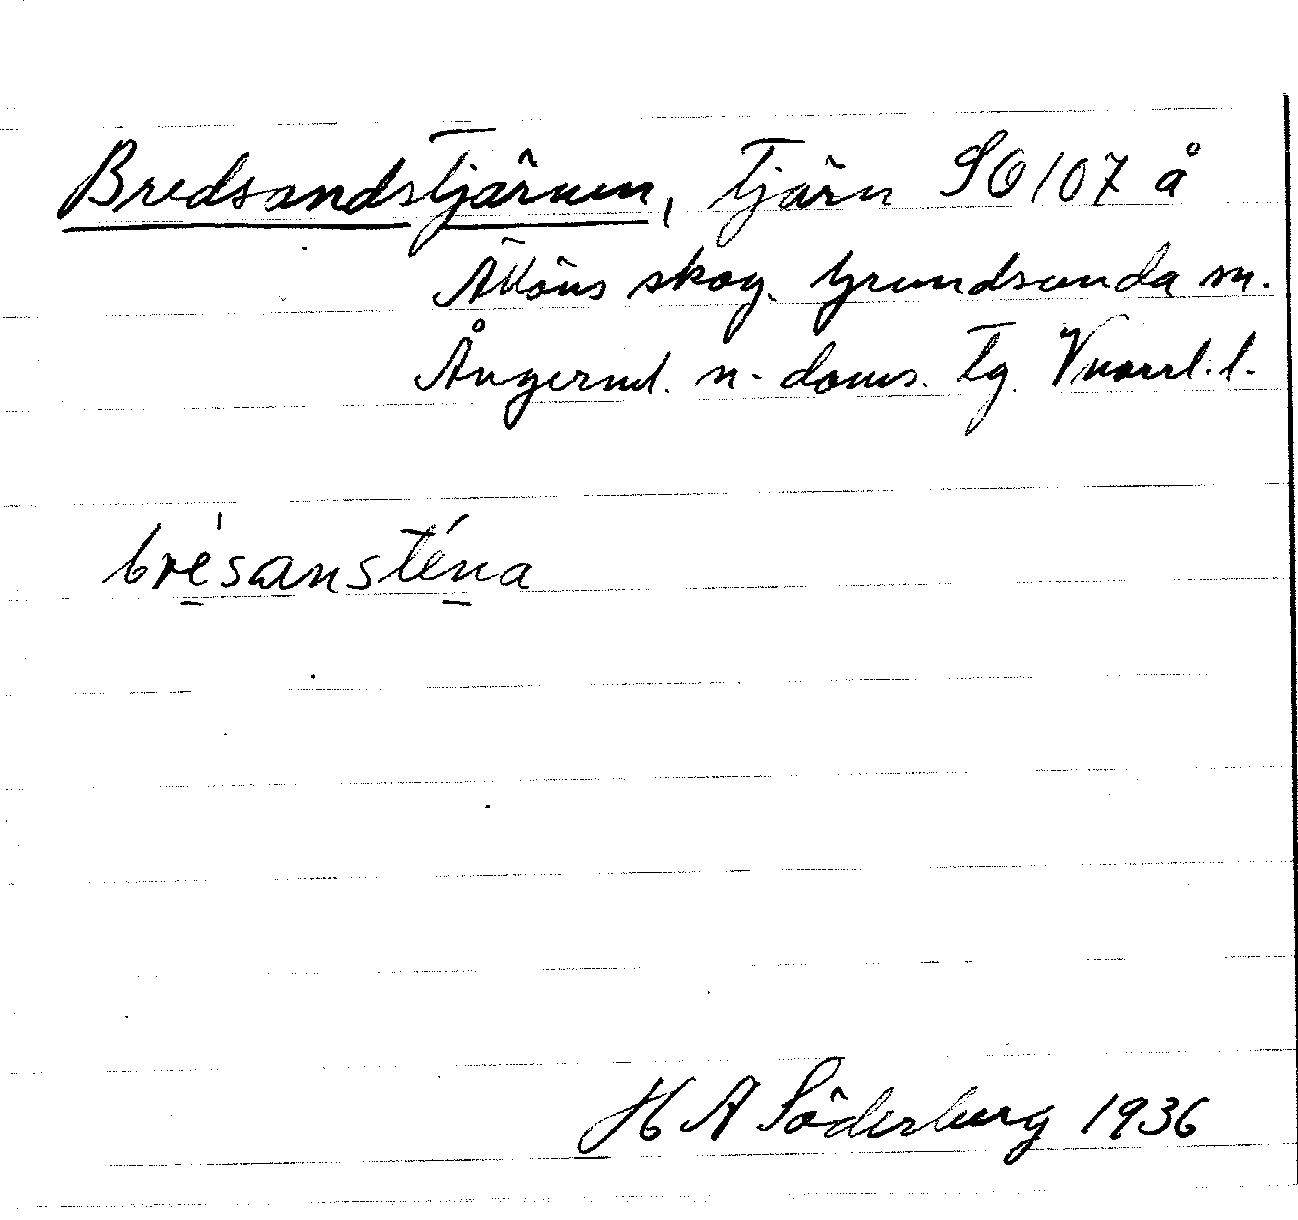 Bredsandstjärnen, tjärn SO/07 å
skog. Grundsunda sn.
Ångerml. n. doms. tg. Vnorrl. l.
brésansténa
H A Söderberg 1936